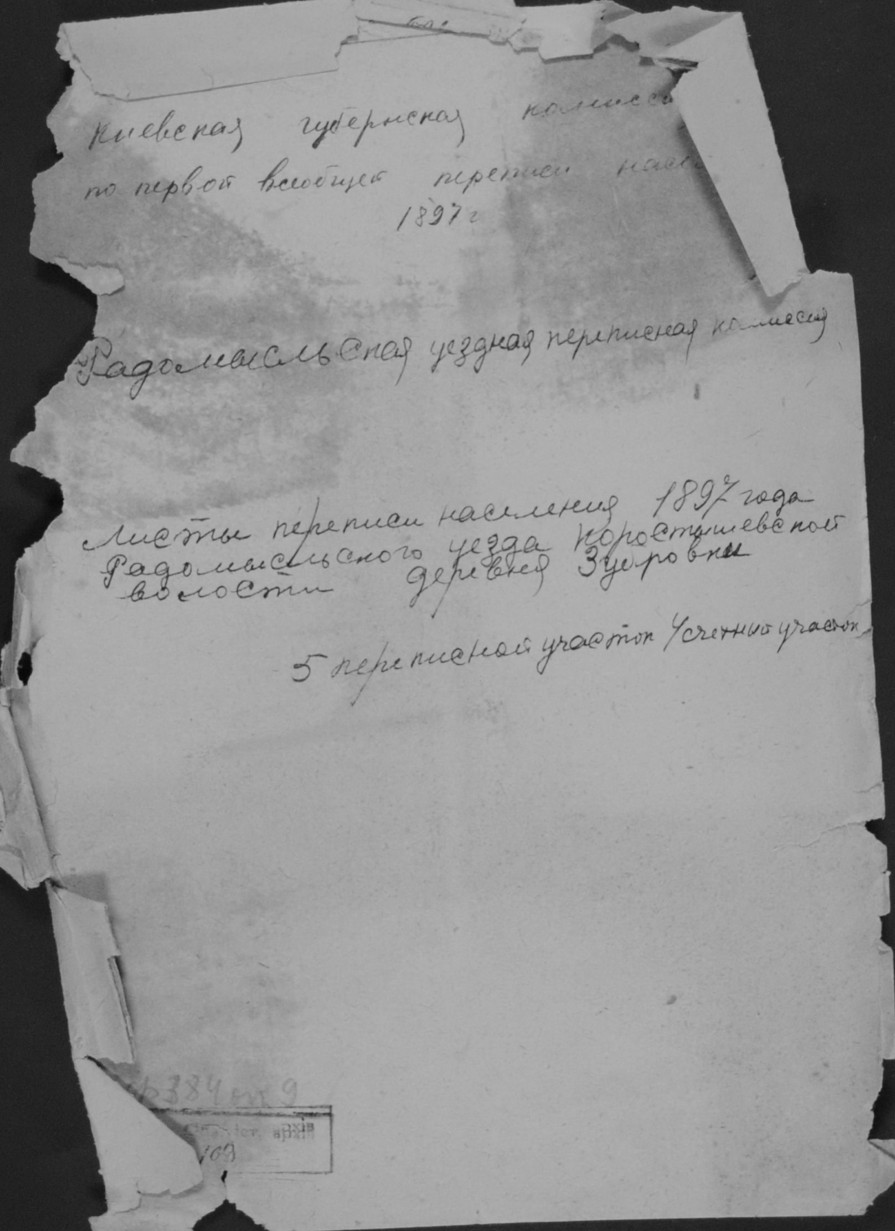 Киевская губернская комисси
по первой всеобщей переписи насел
1897 г
Радомысльская уездная переписная комиссия
Листы переписи населения 1897 года
Радомысльского уезда Коростышевской
волости деревня Зубровки
5 переписной участок 4 счетный участок
ф 384 оп 9
109